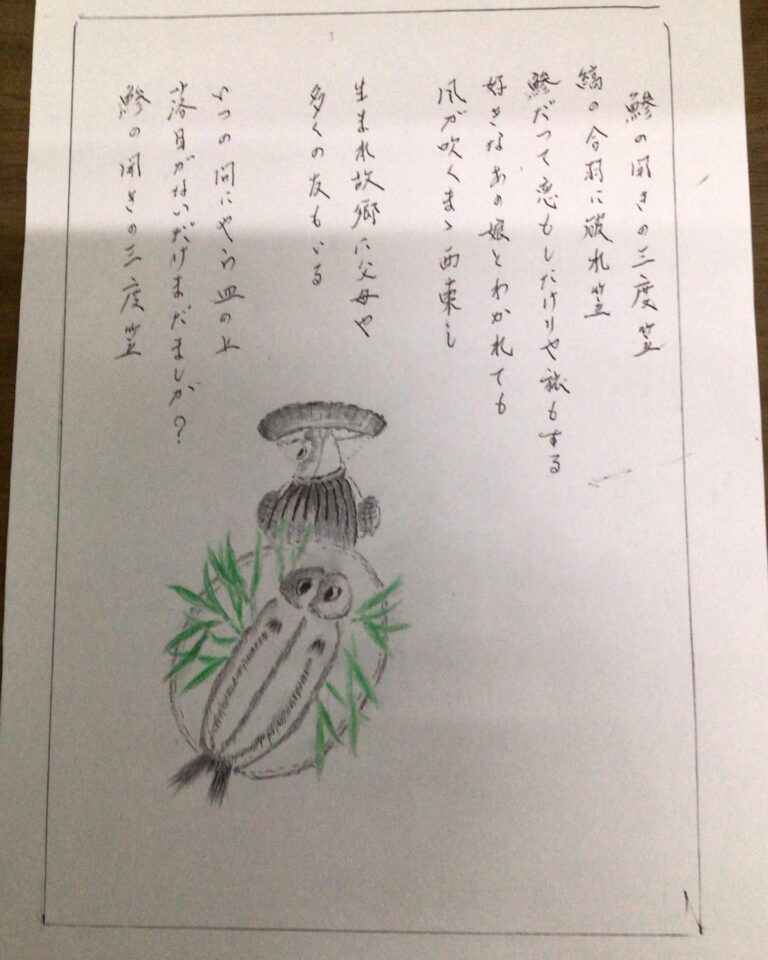 鯵の開きの三度笠
縞の合羽に破れ笠
鯵だって恋もしたけりや旅もする
好きなあの娘とわかれても
風が吹くまゝ西東し
生まれ故郷に父母や
多くの友もいる
いつの間にやら皿の上
落目がないだけまだましか?
鯵の開きの三度笠